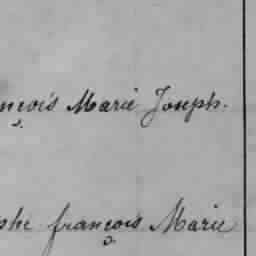 nçois Marie Joseph.
phe françois Marie